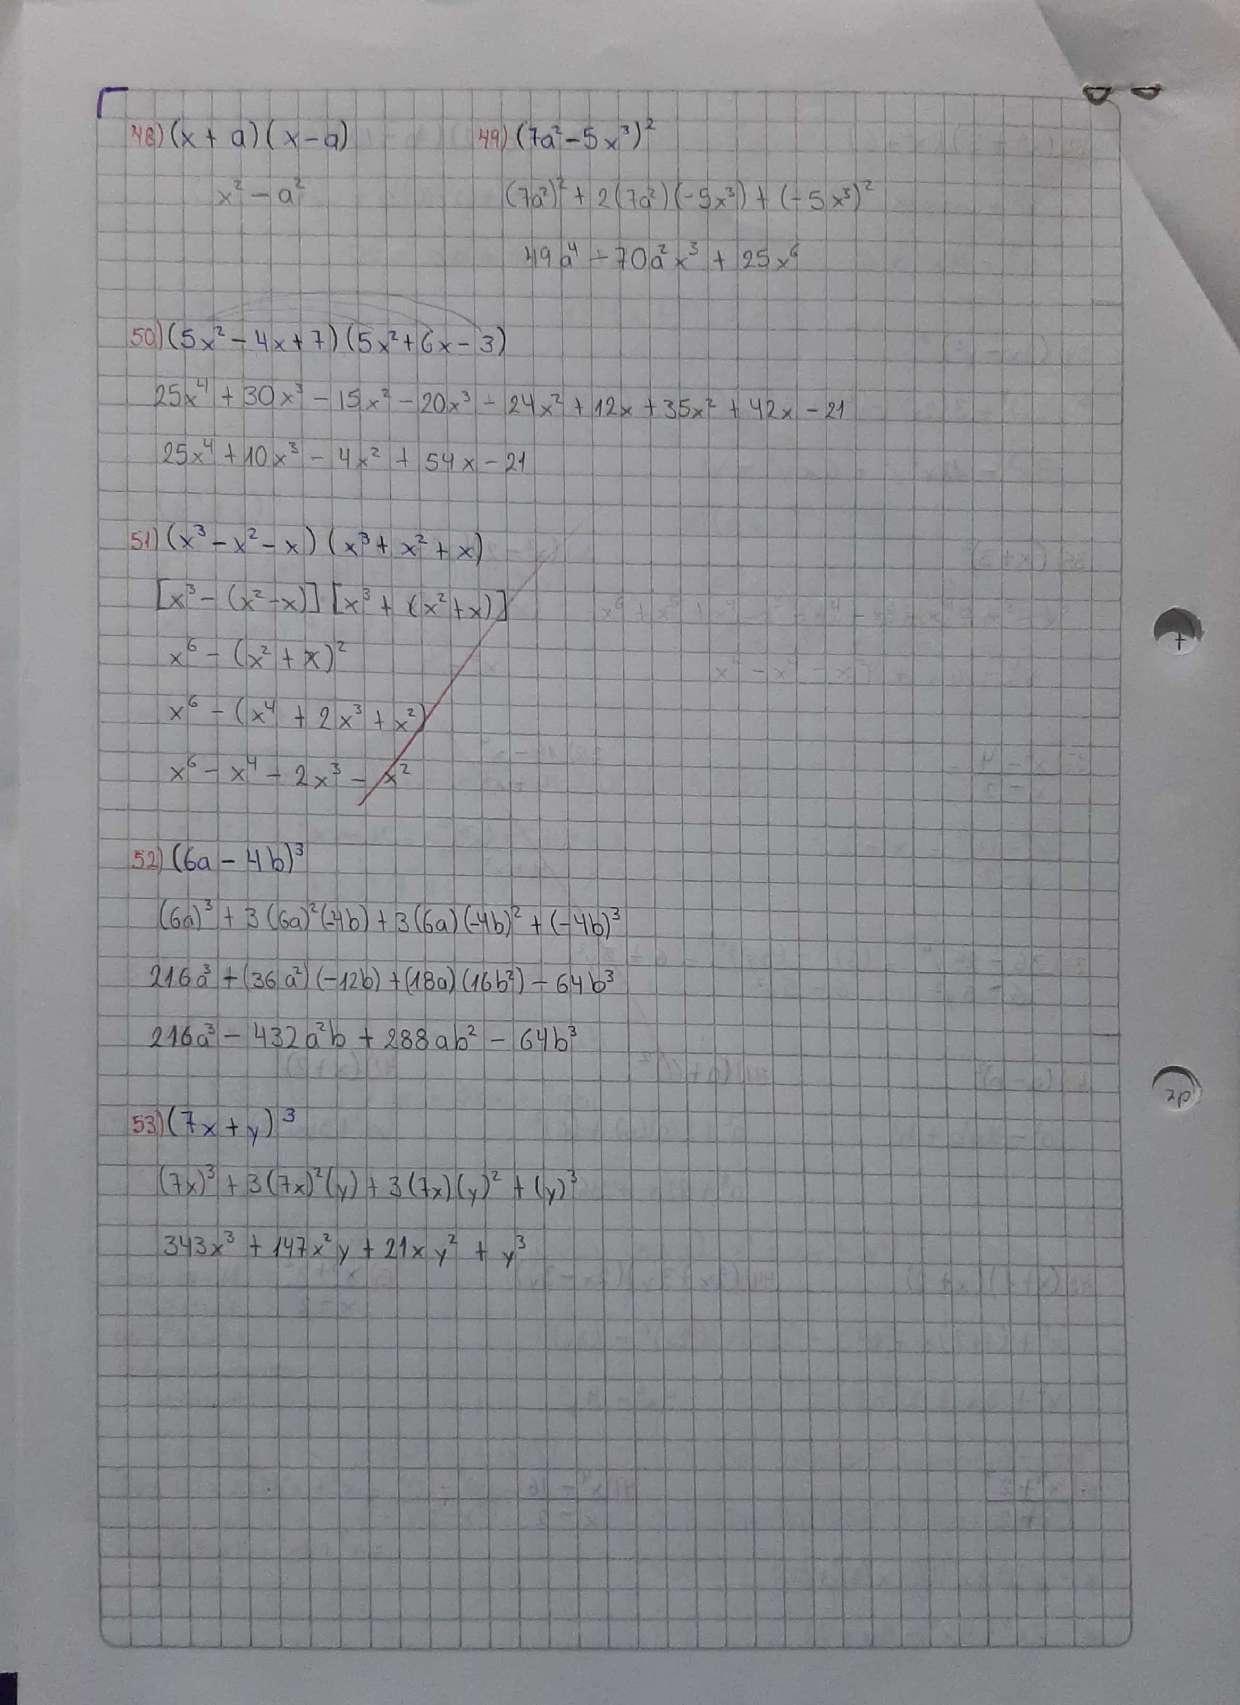 48) (x + a) (x - a)
x² - a²
49) (7a² - 5x³)²
(7a²)² + 2(7a²)(-5x³) + (-5x³)²
49a⁴ - 70a²x³ + 25x⁶
50) (5x² - 4x + 7) (5x² + 6x - 3)
25x⁴ + 30x³ - 15x² - 20x³ - 24x² + 12x + 35x² + 42x - 21
25x⁴ + 10x³ - 4x² + 54x - 21
51) (x³ - x² - x) (x³ + x² + x)
[x³ - (x² + x)] [x³ + (x² + x)]
x⁶ - (x² + x)²
x⁶ - (x⁴ + 2x³ + x²)
x⁶ - x⁴ - 2x³ - x²
52) (6a - 4b)³
(6a)³ + 3(6a)²(-4b) + 3(6a)(-4b)² + (-4b)³
216a³ + (36a²)(-12b) + (18a)(16b²) - 64b³
216a³ - 432a²b + 288ab² - 64b³
53) (7x + y)³
(7x)³ + 3(7x)²(y) + 3(7x)(y)² + (y)³
343x³ + 147x²y + 21xy² + y³